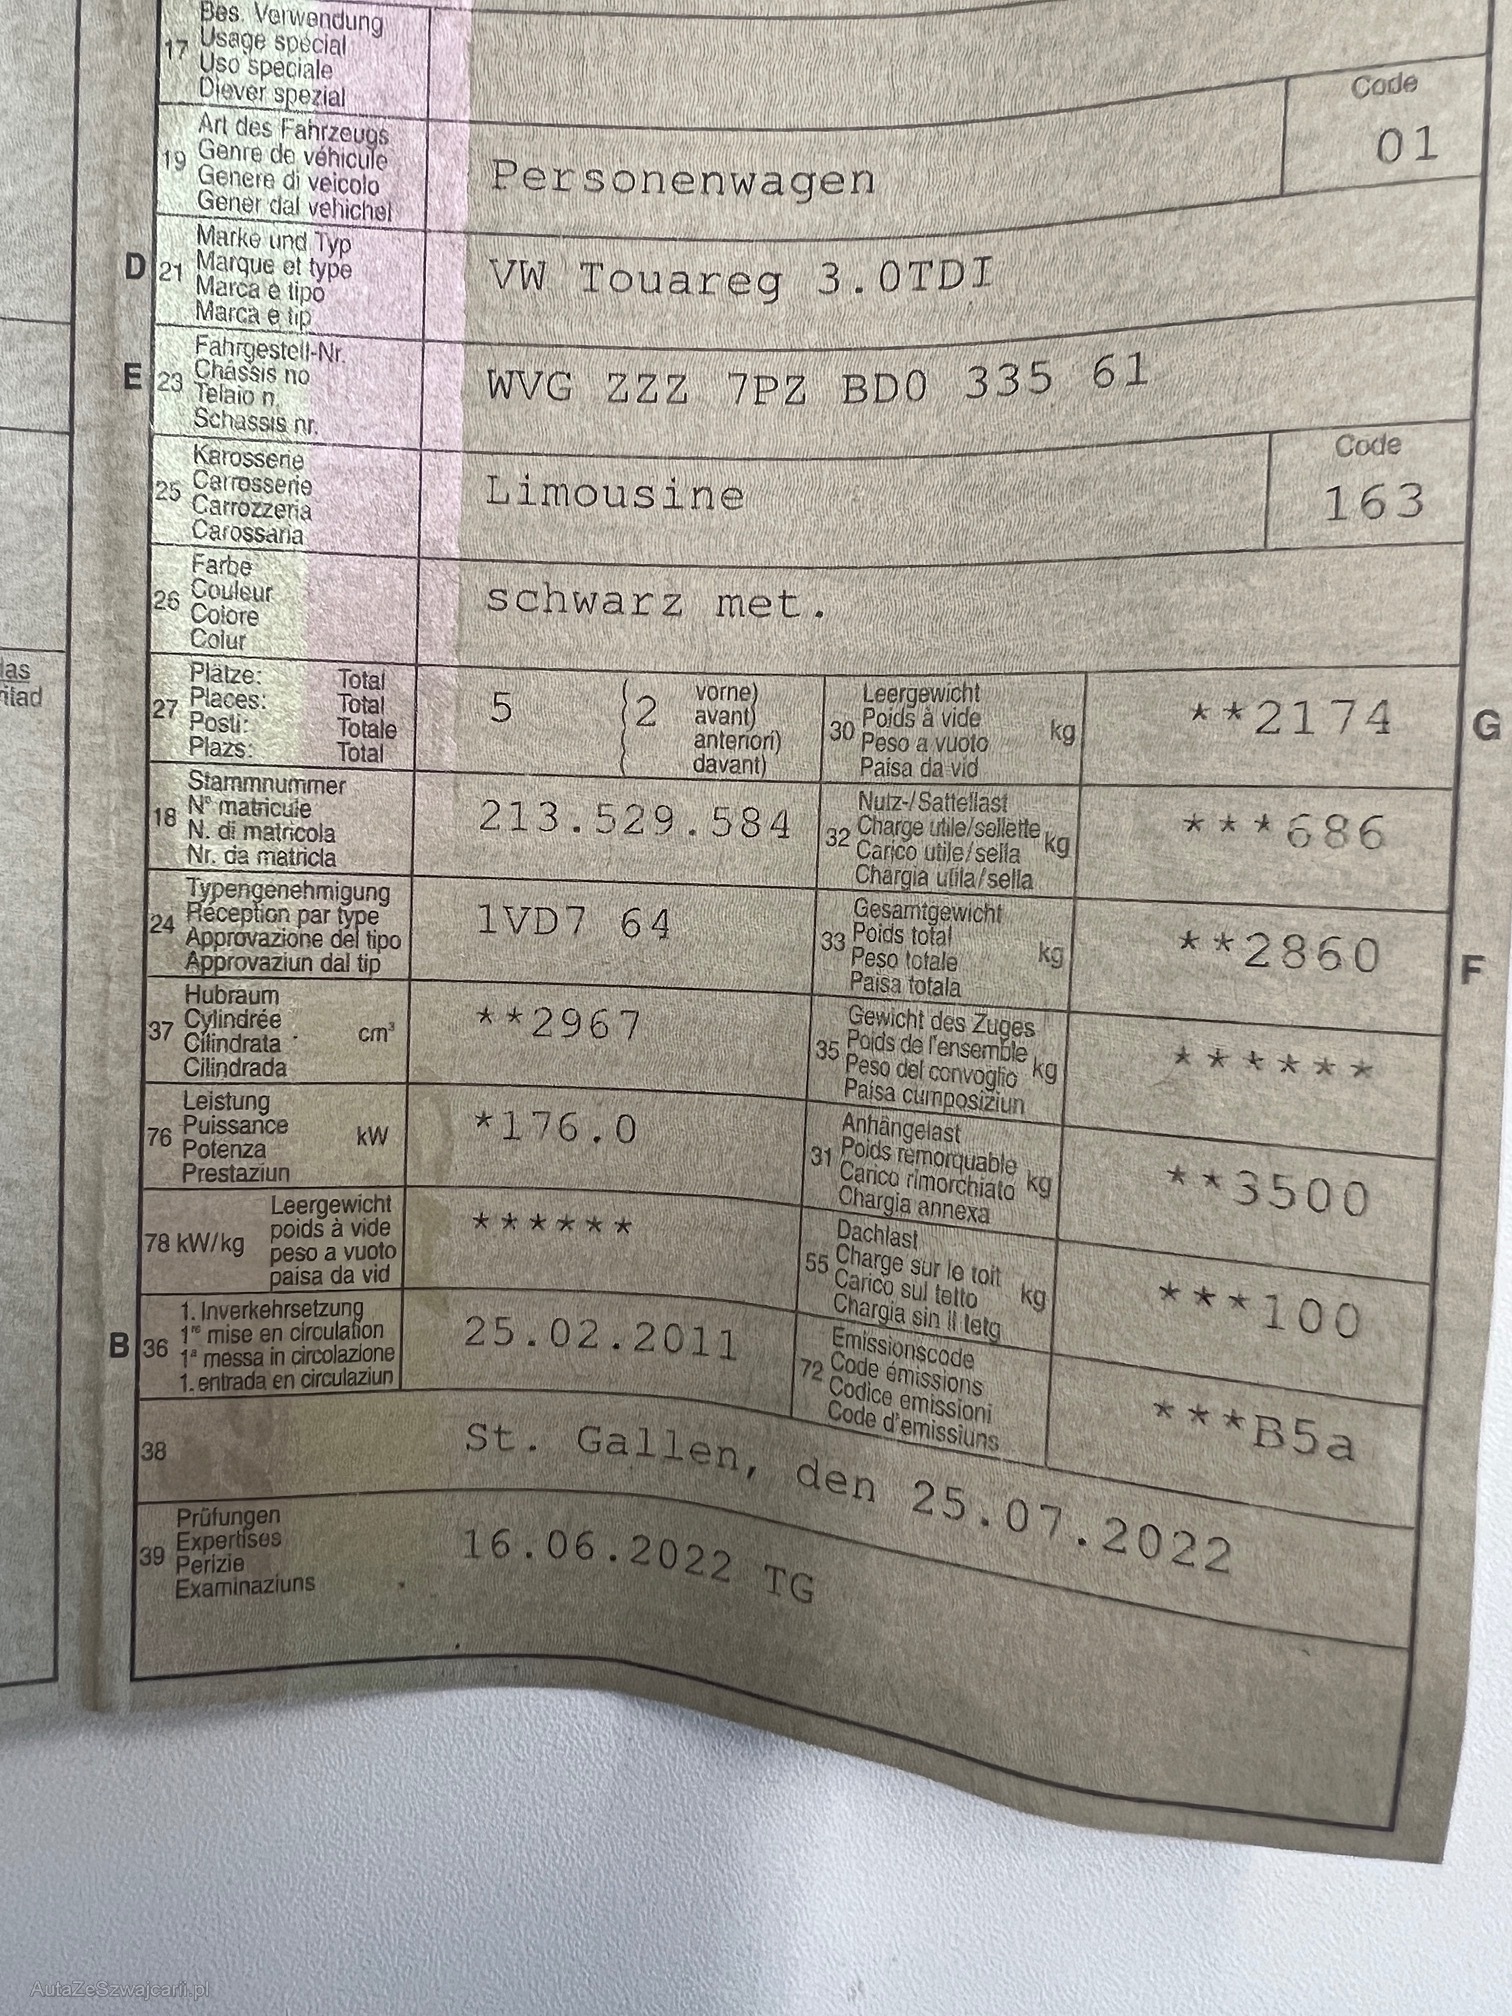 17
Bes. Verwendung
Usage spécial
Uso speciale
Diever spezial
19
Art des Fahrzeugs
Genre de véhicule
Genere di veicolo
Gener dal vehichel
Personenwagen
Code
01
D
21
Marke und Typ
Marque et type
Marca e tipo
Marca e tip
VW Touareg 3.0TDI
E
23
Fahrgestell-Nr.
Châssis no
Telaio n.
Schassis nr.
WVG ZZZ 7PZ BD0 335 61
25
Karosserie
Carrosserie
Carrozzeria
Carossaria
Limousine
Code
163
26
Farbe
Couleur
Colore
Colur
schwarz met.
las
27
Plätze: Total
Places: Total
Posti: Totale
Plazs: Total
5
2
vorne)
avant)
anteriori)
davant)
30
Leergewicht
Poids à vide
Peso a vuoto
Paisa da vid
kg
**2174
G
18
Stammnummer
N° matricule
N. di matricola
Nr. da matricla
213.529.584
32
Nutz-/Sattellast
Charge utile/sellette
Carico utile/sella
Chargia utila/sella
kg
***686
24
Typengenehmigung
Réception par type
Approvazione del tipo
Approvaziun dal tip
1VD7 64
33
Gesamtgewicht
Poids total
Peso totale
Paisa totala
kg
**2860
F
37
Hubraum
Cylindrée
Cilindrata
Cilindrada
cm³
**2967
35
Gewicht des Zuges
Poids de l'ensemble
Peso del convoglio
Paisa cumposiziun
kg
******
76
Leistung
Puissance
Potenza
Prestaziun
kW
*176.0
31
Anhängelast
Poids remorquable
Carico rimorchiato
Chargia annexa
kg
**3500
78 kW/kg
Leergewicht
poids à vide
peso a vuoto
paisa da vid
******
55
Dachlast
Charge sur le toit
Carico sul tetto
Chargia sin il tetg
kg
***100
B
36
1. Inverkehrsetzung
1re mise en circulation
1a messa in circolazione
1. entrada en circulaziun
25.02.2011
72
Emissionscode
Code émissions
Codice emissioni
Code d'emissiuns
***B5a
38
St. Gallen, den 25.07.2022
39
Prüfungen
Expertises
Perizie
Examinaziuns
16.06.2022 TG
AutaZeSzwajcarii.pl